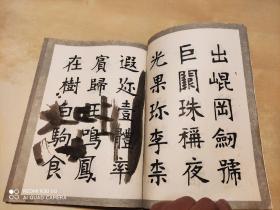 出崐岡劒號
巨闕珠稱夜
光果珎李柰
遐迩壹體率
賓歸王鳴鳳
在樹白駒食
AI QUAD CAMERA